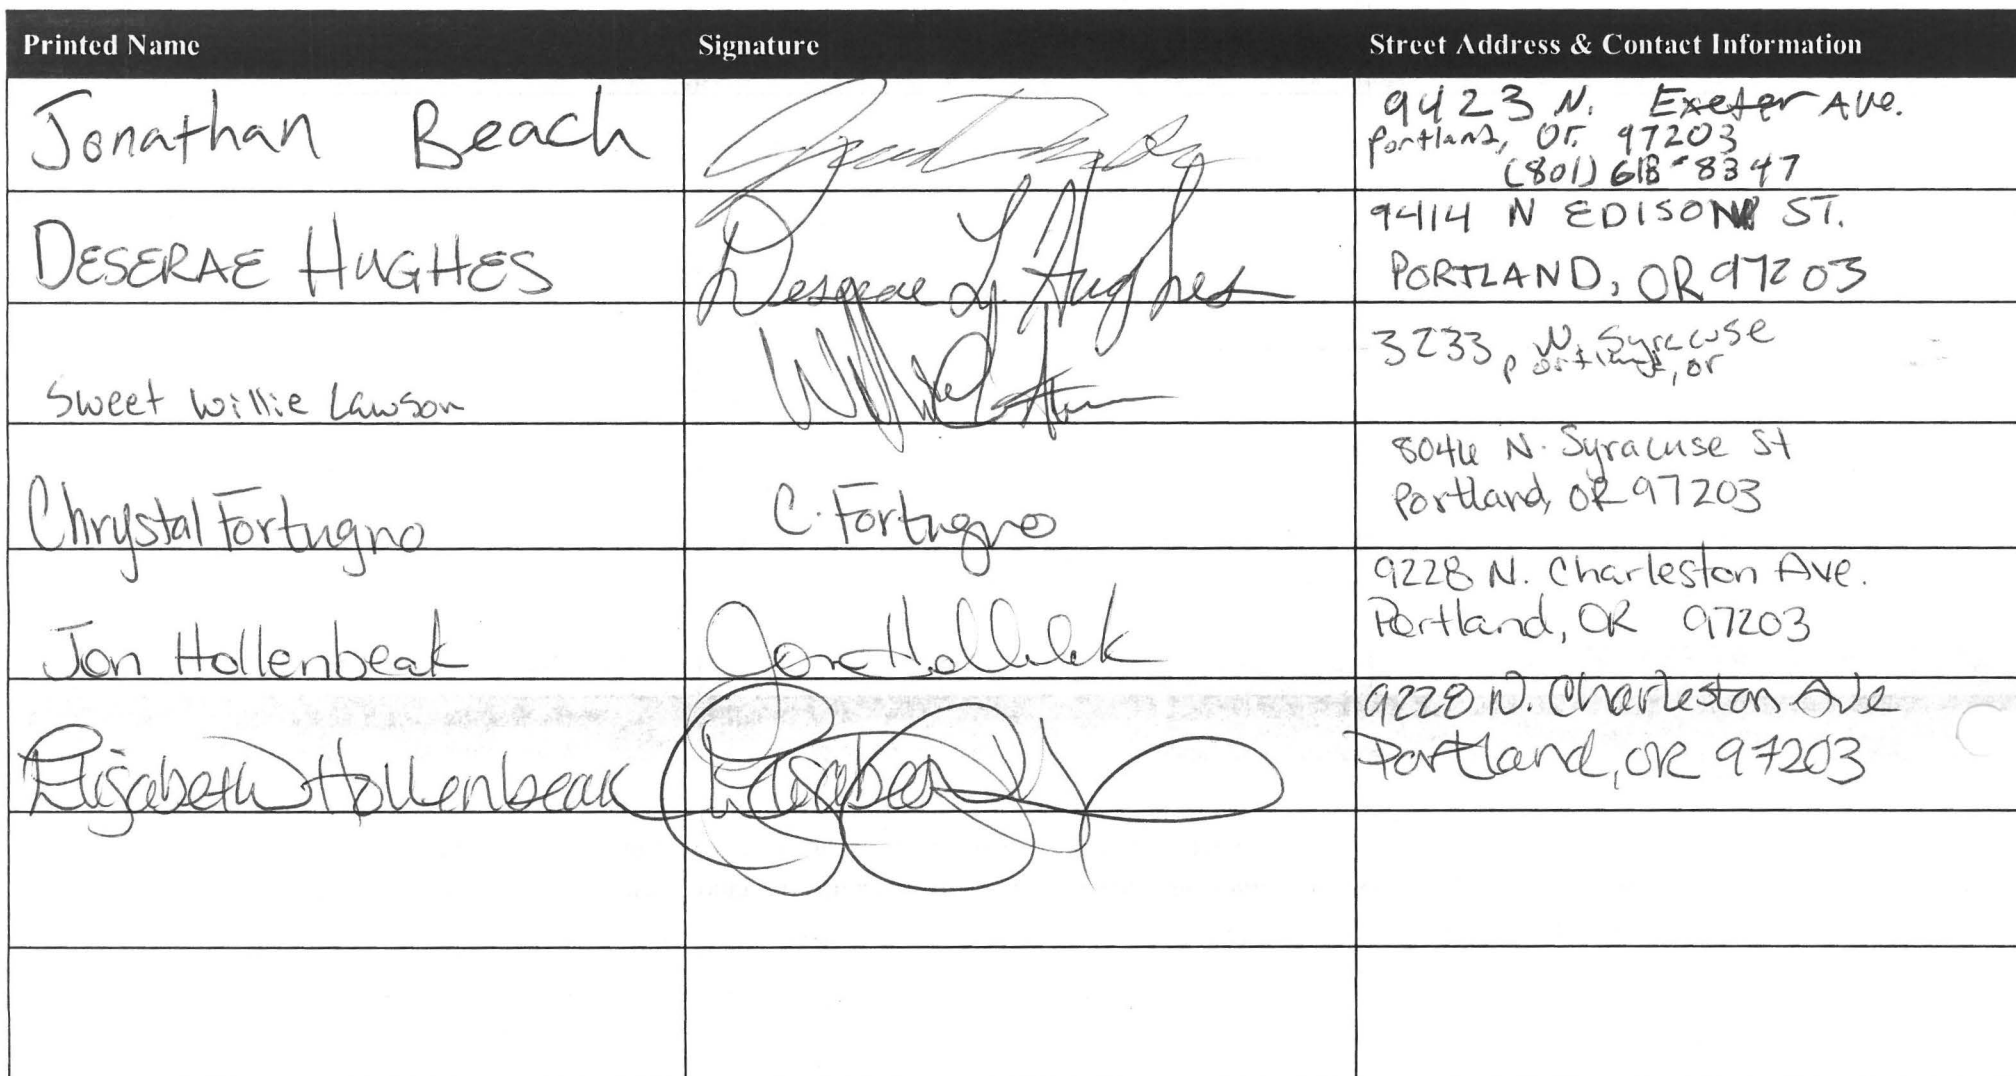 Printed Name Signature Street Address & Contact Information
Jonathan Beach
9423 N. Exeter Ave.
Portland, Or. 97203
(801) 618-8347
DESERAE HUGHES Deserae L. Hughes
9414 N EDISON ST.
PORTLAND, OR 97203
Sweet Willie Lawson
3233 N. Syracuse
Portland, or
Chrystal Fortugno C. Fortugno
8046 N. Syracuse St
Portland, OR 97203
Jon Hollenbeak
9228 N. Charleston Ave.
Portland, OR 97203
Elizabeth Hollenbeak
9228 N. Charleston Ave
Portland, OR 97203